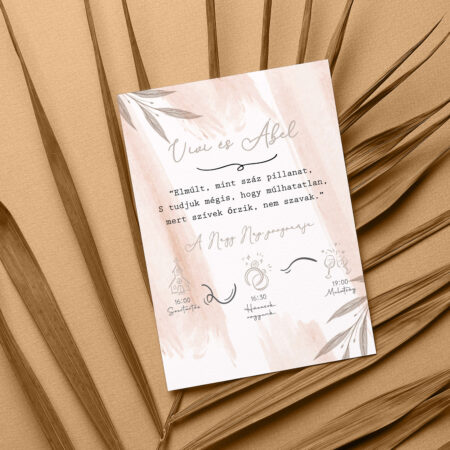 Vivi és Ábel
"Elmúlt, mint száz pillanat,
S tudjuk mégis, hogy múlhatatlan,
mert szívek őrzik, nem szavak."
A Nagy Nap programja
16:00
Szertartás
16:30
Házasok
vagyunk
19:00
Mulatság